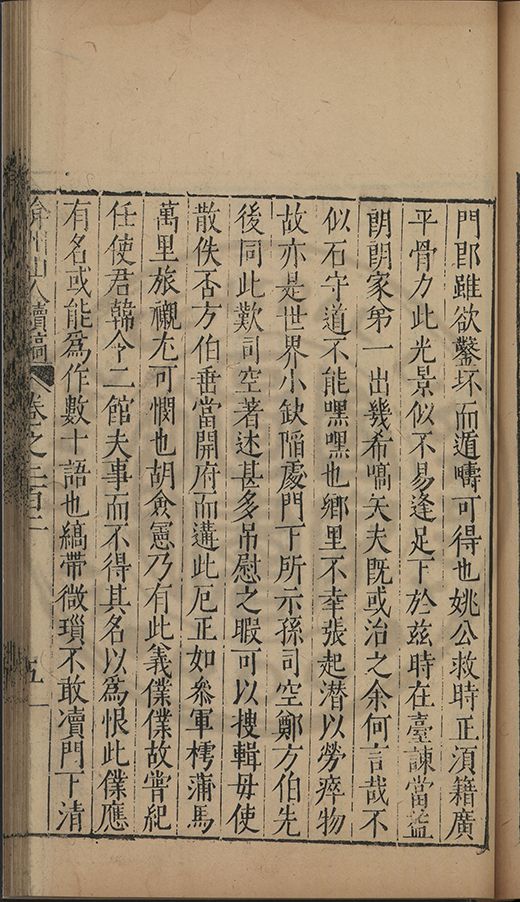 門郎雖欲鑿坏而遁疇可得也姚公救時正須籍廣
平骨力此光景似不易逢足下於茲時在臺諫當益
朗朗家第一出幾希嚆矢夫既或治之余何言哉不
似石守道不能嘿嘿也鄉里不幸張起潛以勞瘁物
故亦是世界小缺陷處門下所示孫司空鄭方伯先
後同此歎司空著述甚多吊慰之暇可以搜輯毋使
散佚否方伯垂當開府而遘此厄正如叅軍樗蒲馬
萬里旅櫬尤可憫也胡僉憲乃有此義僕僕故嘗紀
任使君韓令二館夫事而不得其名以爲恨此僕應
有名或能爲作數十語也縞帶微瑣不敢凟門下清
弇州山人續稿 卷之二百二 五